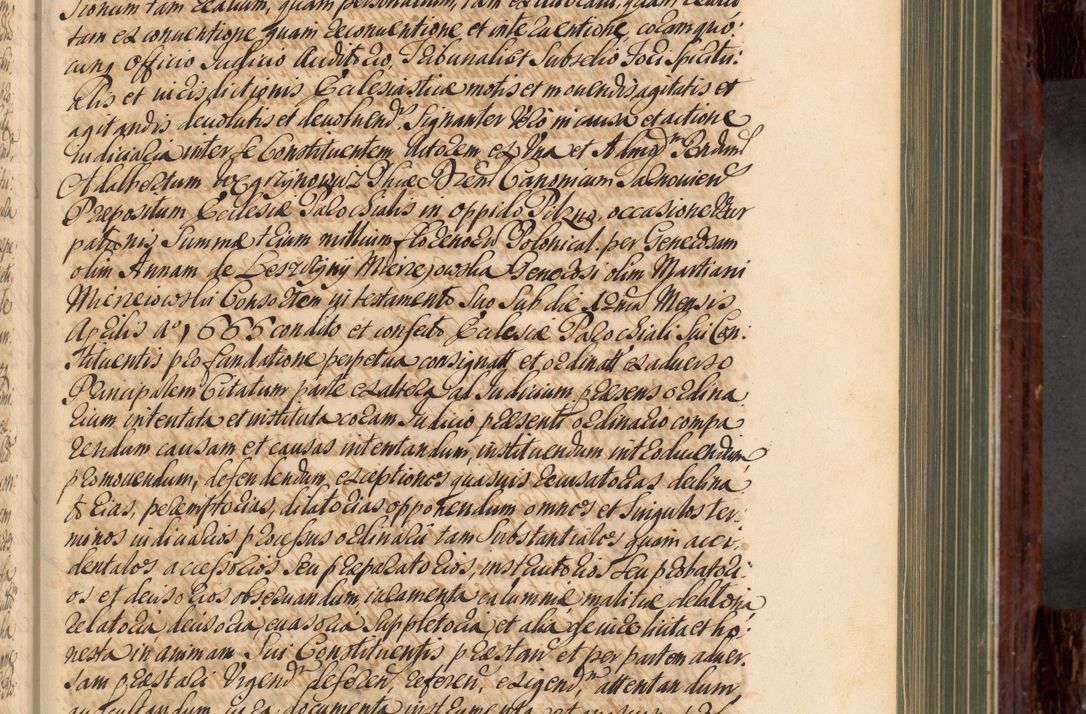 tionum tam realium, quam personalium, tam ex
tam ex conventione quam reconventione et interventione, coram quo:
cunq Officio Iudicio Auditorio, Tribunalibt Subselio Foci Spiritu:
alis et iurisdictionis Ecclesiasticae motis et movendis agitatis et
agitandis devolutis et devolvend. Signanter Vero in causa et actione
Iudiciaria inter se Constituentem Actorem ex Una et Admrd
Adalbertum Wegrzynowicz Canonicum Tarnovien
Praepositum Ecclesiae Parochialis in oppido Pilzno, occasione
summae trium millium florenoru Polonical. per Generosam
olim Annam de Leszczyny Mierzejowska Generosi olim Martiani
Mierzeiowski Consortem in testamento Suo Sub die 12ma Mensis
Aprilis Ao 1665 condito et confecto Ecclesiae Parochiali Sui Con:
stituentis pro fundatione perpetua consignatt et ordinatt ex adverso
Principalem Citatum parte ex altera ad Iudicium praesens ordina
rium intentata et instituta coram Iudicio praesenti ordinario compa
rendum causam et causas intentandum, instituendum introducendum
promovendum, defendendum, exceptiones quasvis recusatorias declina
torias, peremptorias, dilatorias opponendum omnes et singulos ter:
minos iudiciarios processus ordinarii tam Substantiales quam acci:
dentales accessorios seu praeparatorios, instructorios seu probatori:
os et decisorios observandum, iuramenta calumniae malitiae delatoria
relatoria decisoria, evasoria Suppletoria, et alia de iure licita et ho:
nesta in animam Sui Constituentis praestan et per partem adver.
sam praestari Vigend deferen, referen, exigend, attentandum,
documenta instrumenta et